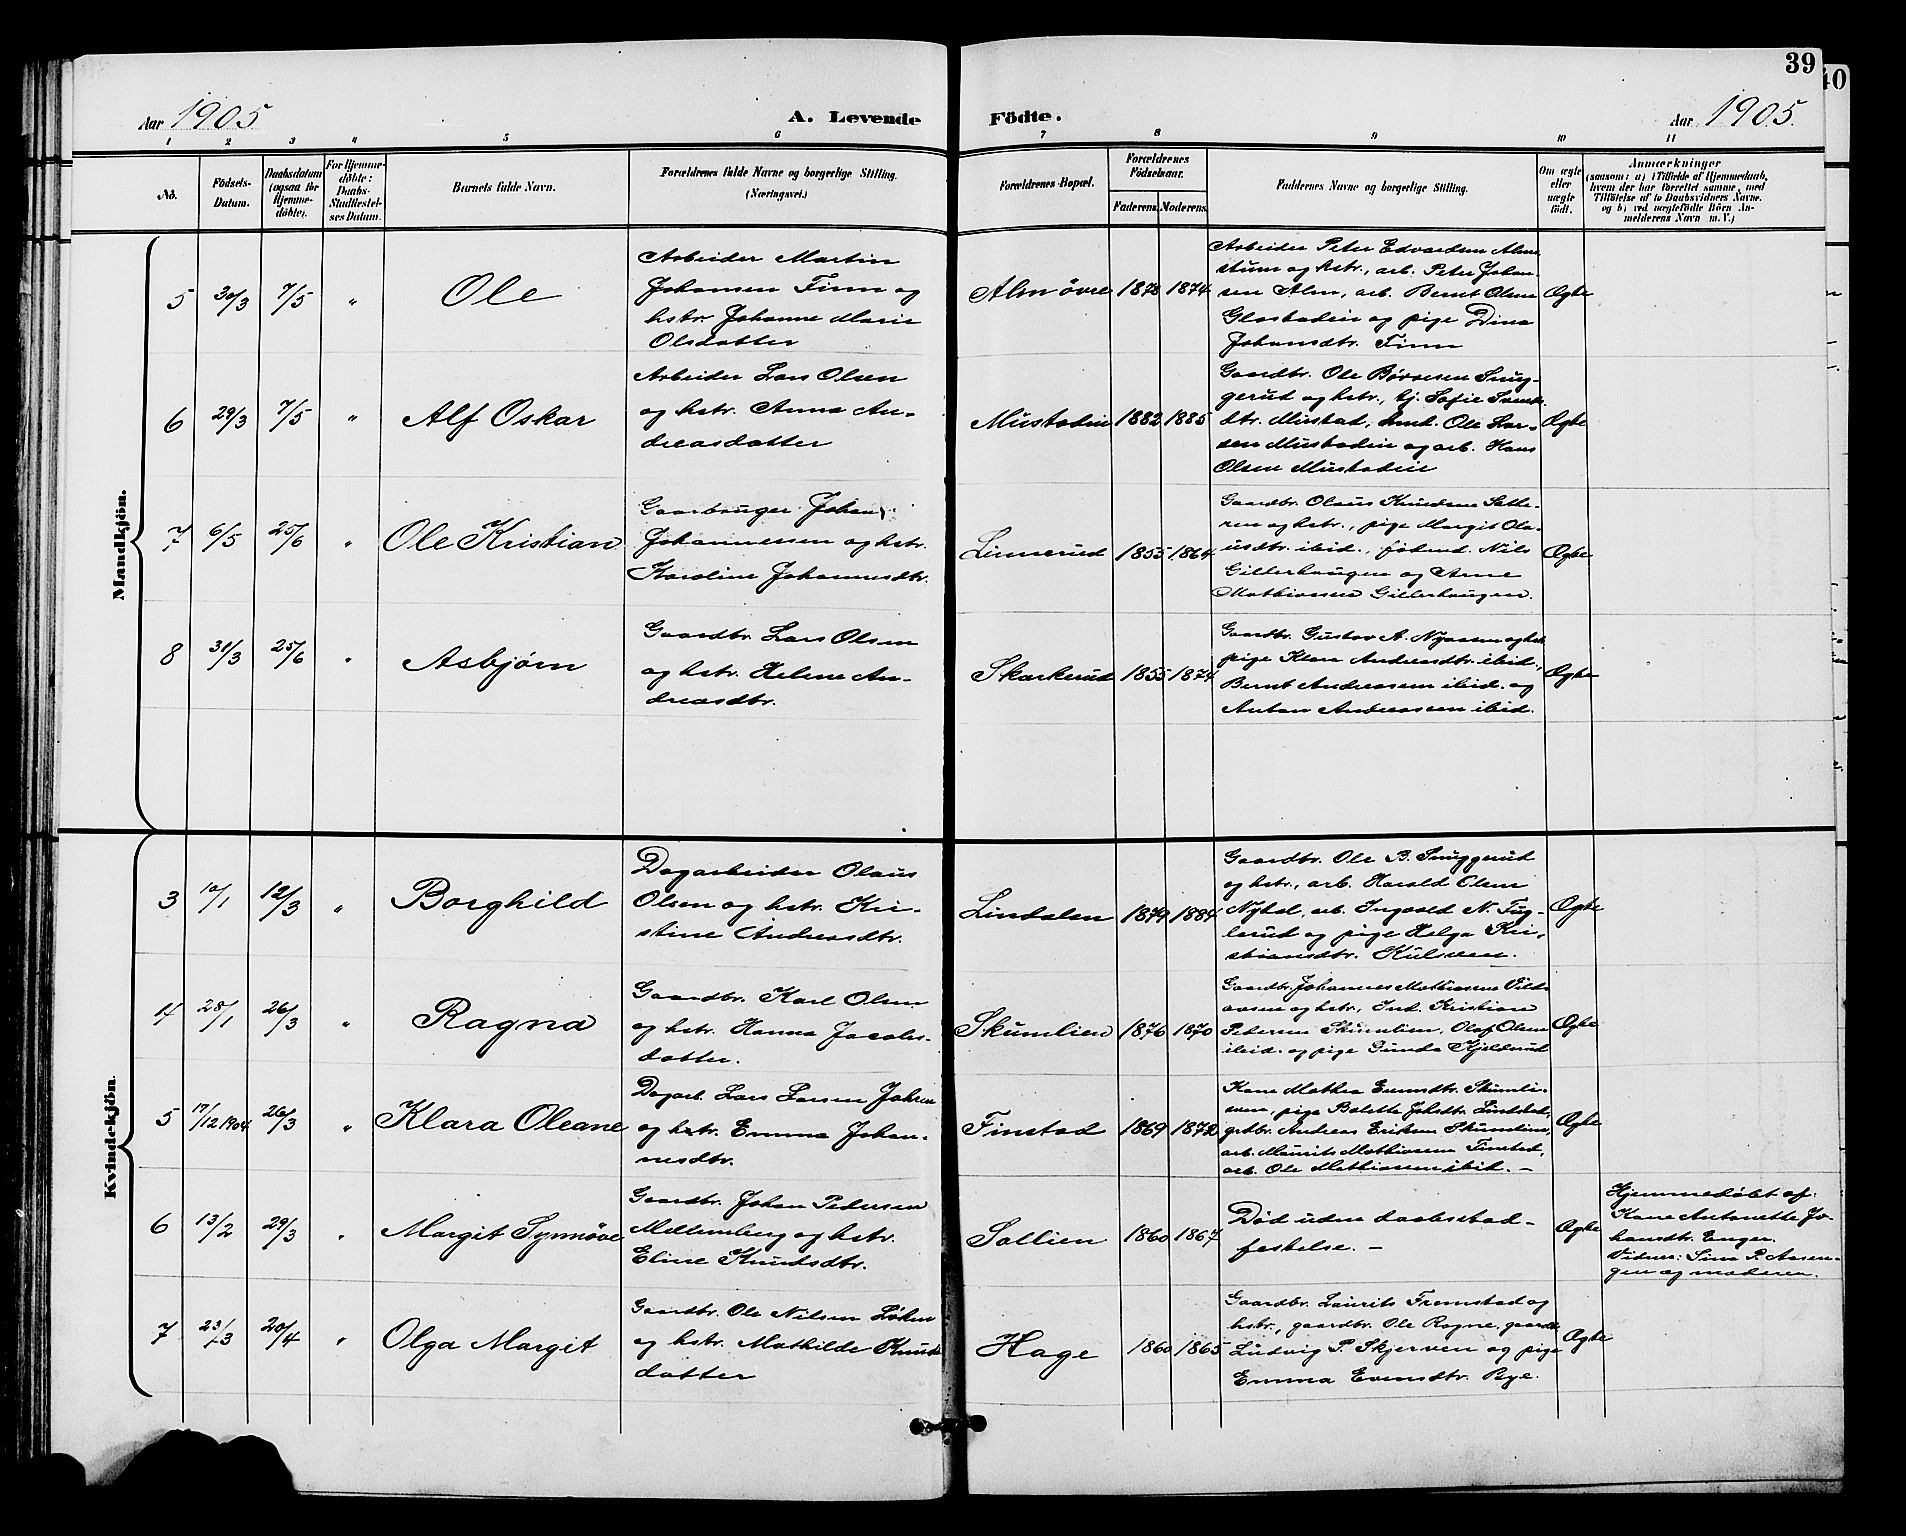 39
40
Aar 1905
A. Levende
Födte.
Aar 1905.
1 2 3 4 5 6 7 8 9 10 11
No.
Födsels-
Datum.
Daabsdatum
(ogsaa for
Hjemme-
döbte).
For Hjemme-
döbte:
Daabs-
Stadfæstel-
ses Datum.
Barnets fulde Navn.
Forældrenes fulde Navne og borgerlige Stilling.
(Næringsvei.)
Forældrenes Bopæl.
Forældrenes
Födselsaar.
Faderens.
Moderens.
Faddernes Navne og borgerlige Stilling.
Om ægte
eller
uægte
födt.
Anmærkninger
(saasom: a) i Tilfælde af Hjemmedaab,
hvem der har forrettet samme, med
Tilföielse af to Daabsvidners Navne.
og b) ved uægtefödte Börn An-
melderens Navn m. V.)
Mandkjön.
5 30/3 7/5 " Ole
Arbeider Martin
Johansen Finn og
hstr. Johanne Marie
Olsdatter
Alm øvre 1878 1874
Arbeider Peter Edvardsen Alm-
stuen og hstr., arb. Peter Johan-
sen Alm, arb. Bernt Olsen
Glæstadeie og pige Dina
Johansdtr. Finn
Ægte
6 29/3 7/5 " Alf Oskar
Arbeider Lars Olsen
og hstr. Anna An-
dreasdatter
Mustadeie 1882 1885
Gaardbr. Ole Børresen Snug-
gerud og hstr., tj. Sofie
dtr. Mustad, Ole Lar-
sen Mustadeie og arb. Hans
Olsen Mustadeie
Ægte
7 6/5 25/6 " Ole Kristian
Gaarbruger Johan
Johannessen og hstr.
Karoline Johannesdtr.
Linnerud 1855 1864
Gaardbr. Olaus Knudsen Sætte-
ren og hstr., pige Margit Ola-
usdtr. ibid., Nils
Gillerhaugen og Arne
Mathiassen Gillerhaugen.
Ægte
8 31/3 25/6 " Asbjørn
Gaardbr. Lars Olsen
og hstr. Helene An-
dreasdtr.
Skarkerud 1855 1874
Gaardbr. Gustav A. Nyaasen og hstr.
pige Klara Andreasdtr. ibid.,
Bernt Andreassen ibid. og
Anton Andreassen ibid.
Ægte
Kvindekjön.
3 10/1 12/3 " Borghild
Dagarbeider Olaus
Olsen og hstr. Kri-
stine Andreasdtr.
Lindalen 1879 1884
Gaardbr. Ole B. Snuggerud
og hstr., arb. Harald Olsen
Nyhal, arb. Ingvald N. Fug-
lerud og pige Helga Kri-
stiansdtr. Kulsveen.
Ægte
4 28/1 26/3 " Ragna
Gaardbr. Karl Olsen
og hstr. Hanna Jacobs-
datter.
Skumlien 1876 1870
Gaardbr. Johannes Mathiassen Vild-
aasen og hstr., Ind. Kristian
Pedersen Skumlien, Olaf Olsen
ibid. og pige Gunda Kjelderud
Ægte
5 17/12 1904 26/3 " Klara Oleane
Dagarb. Lars Larsen Jahren
og hstr. Emma Johan-
nesdtr.
Finstad 1869 1872
Kone Mathea Evensdtr. Skumli-
sveen, pige Bolette Johsdtr. Lindstad,
grdbr. Andreas Eriksen Skumlien,
arb. Maurits Mathiassen Finstad,
arb. Ole Mathiassen ibid. –
Ægte
6 13/2 29/3 " Margit Synnøve
Gaardbr. Johan Pedersen
Mellemberg og hstr.
Eline Knudsdtr.
Sollien 1860 1867
Død uden daabsstad-
fæstelse. –
Ægte
Hjemmedøbt af:
Kone Antonette Jo-
hansdtr. Enger.
Vidner: Sina P. Aasen-
gen og moderen.
7 23/3 20/4 " Olga Margit
Gaardbr. Ole Nilsen Løken
og hstr. Mathilde Knuds-
datter
Hage 1860 1865
Gaardbr. Laurits Fremstad og
hstr., gaardbr. Ole Rogne, gaardbr.
Ludvig P. Skjerven og pige
Emma Evensdtr. Bye.
Ægte